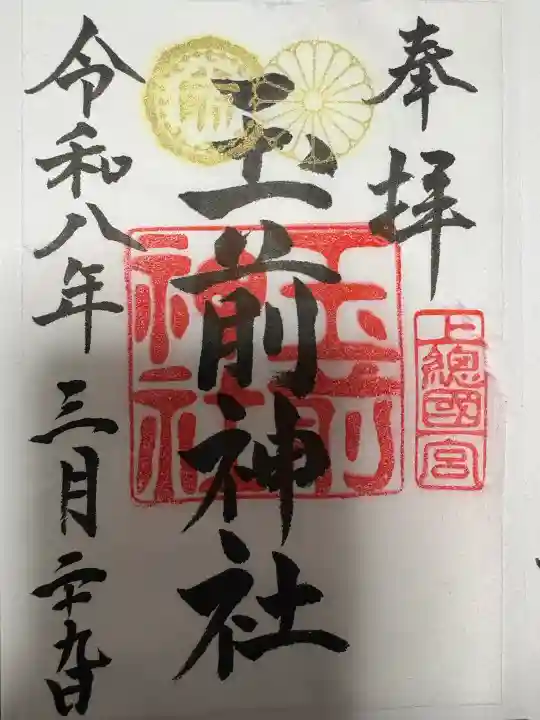 奉拝
上總國一宮
玉前神社
玉前神社
令和八年三月二十九日